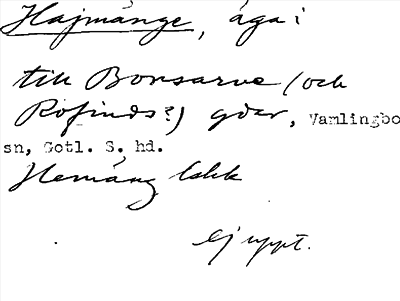 Hajmänge, äga i
till Bonsarve (och
Rofinds?) gdar, Vamlingbo
sn, Gotl. S. hd.
Hemäng
ej uppt.